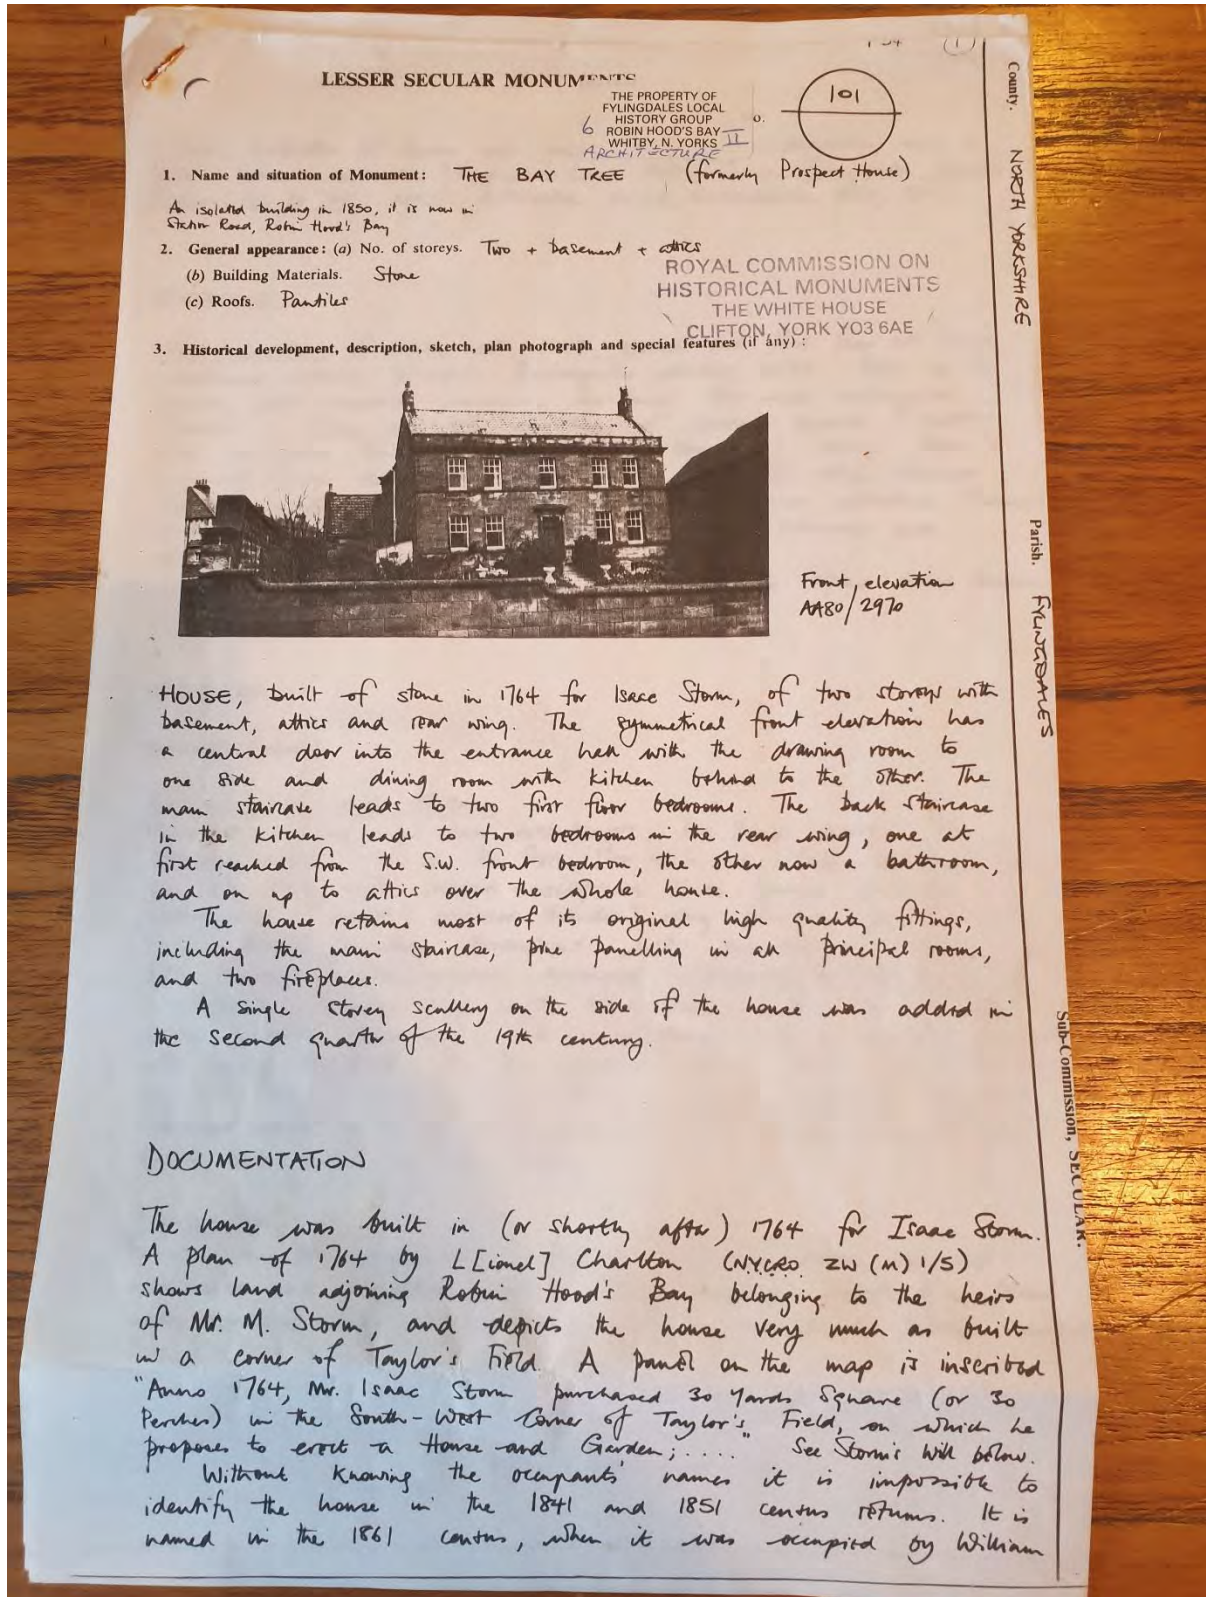 LESSER SECULAR MONUMENTS
THE PROPERTY OF
FYLINGDALES LOCAL
HISTORY GROUP
6 ROBIN HOOD'S BAY
WHITBY, N. YORKS II
ARCHITECTURE
o.
101
(1)
1. Name and situation of Monument: THE BAY TREE (formerly Prospect House)
An isolated building in 1850, it is now in
Station Road, Robin Hood's Bay
2. General appearance: (a) No. of storeys. Two + basement + attics
(b) Building Materials. Stone
(c) Roofs. Pantiles
ROYAL COMMISSION ON
HISTORICAL MONUMENTS
THE WHITE HOUSE
CLIFTON, YORK YO3 6AE
3. Historical development, description, sketch, plan photograph and special features (if any):
Front elevation
AA80/2970
HOUSE, built of stone in 1764 for Isaac Storm, of two storeys with
basement, attics and rear wing. The symmetrical front elevation has
a central door into the entrance hall with the drawing room to
one side and dining room with kitchen behind to the other. The
main staircase leads to two first floor bedrooms. The back staircase
in the kitchen leads to two bedrooms in the rear wing, one at
first reached from the S.W. front bedroom, the other now a bathroom,
and on up to attics over the whole house.
The house retains most of its original high quality fittings,
including the main staircase, pine panelling in all principal rooms,
and two fireplaces.
A single storey scullery on the side of the house was added in
the second quarter of the 19th century.
DOCUMENTATION
The house was built in (or shortly after) 1764 for Isaac Storm.
A plan of 1764 by L[ionel] Charlton (N.Y.C.R.O. ZW (M) 1/5)
shows land adjoining Robin Hood's Bay belonging to the heirs
of Mr. M. Storm, and depicts the house very much as built
in a corner of Taylor's Field. A panel on the map is inscribed
"Anno 1764, Mr. Isaac Storm purchased 30 Yards Square (or 30
Perches) in the South-West Corner of Taylor's Field, on which he
proposes to erect a House and Garden; ...." See Storm's will below.
Without knowing the occupants' names it is impossible to
identify the house in the 1841 and 1851 census returns. It is
named in the 1861 census, when it was occupied by William
County. NORTH YORKSHIRE
Parish. FYLINGDALES
Sub-Commission, SECULAR.